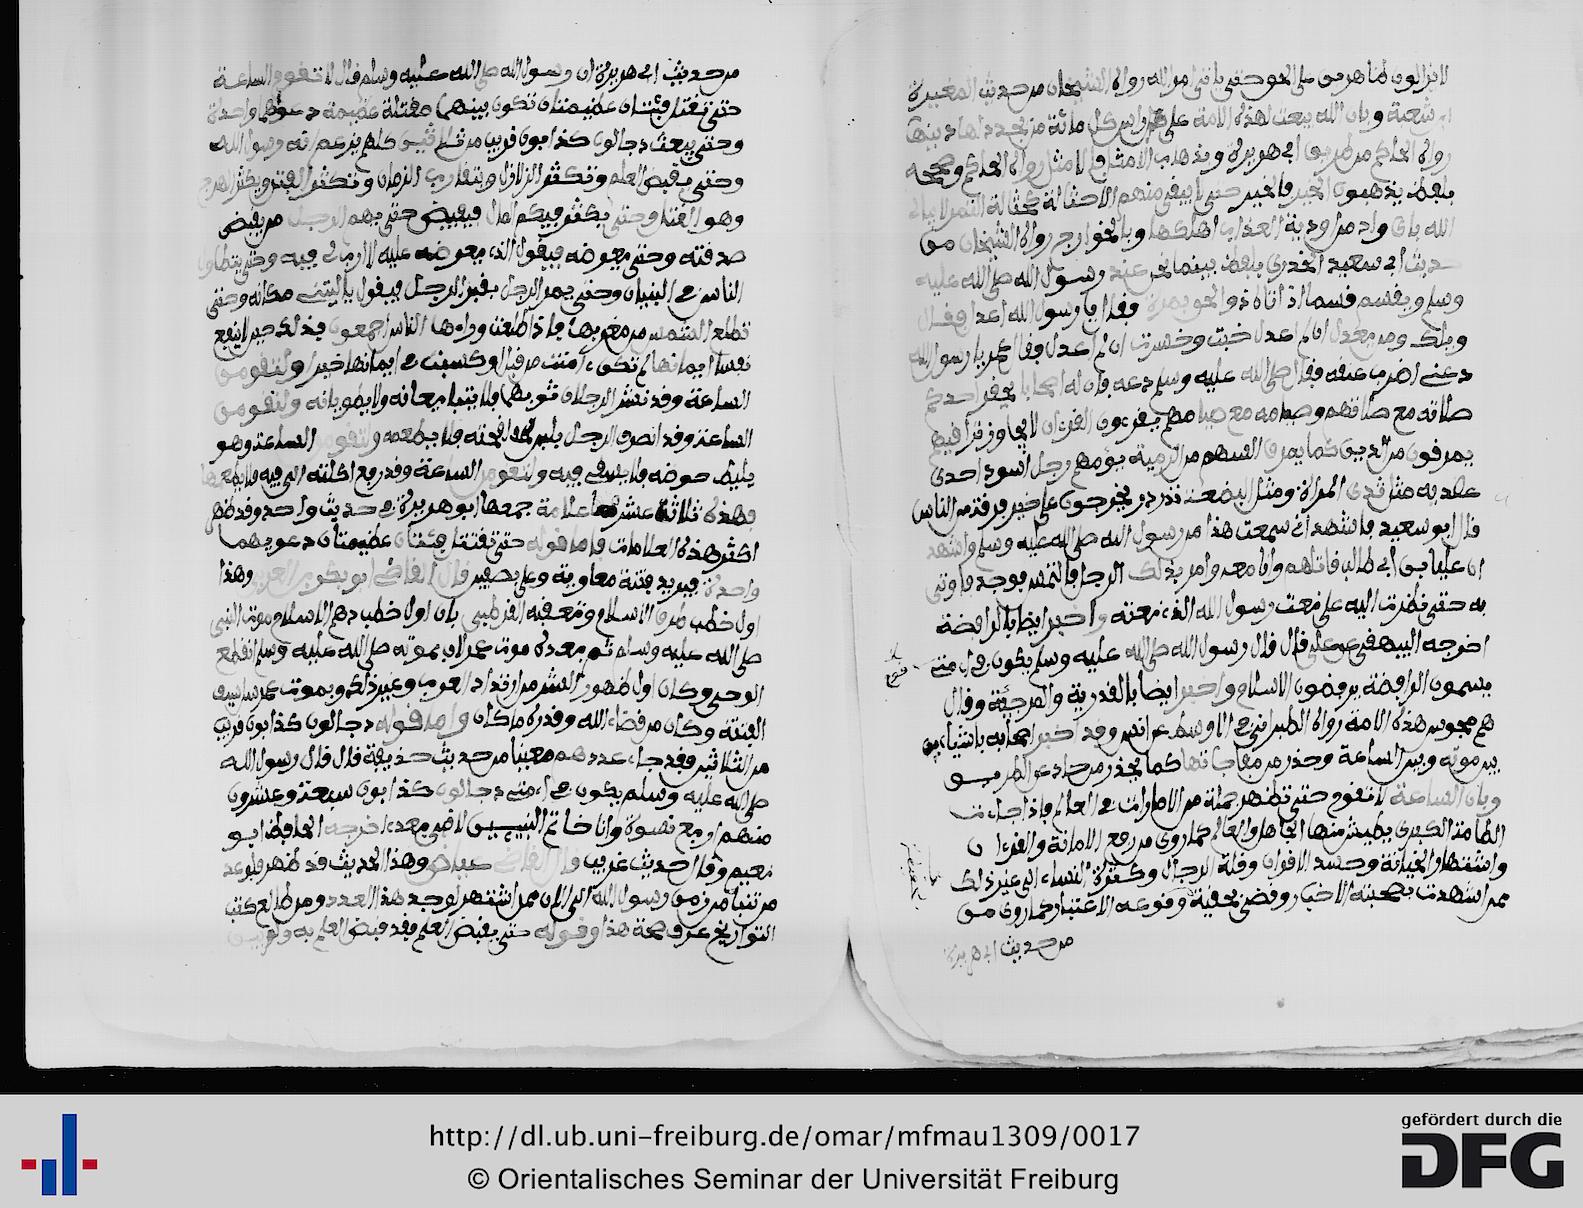 لا يزالون ظاهرين على الحق حتى ياتي امر الله رواه الشيخان من حديث المغيرة
بن شعبة وبان الله يبعث لهذه الامة على راس كل مائة من يجدد لها دينها
رواه الحاكم من طريق ابي هريرة وبذهاب الامثل فالامثل رواه الحاكم وصححه
بلفظ يذهبون الخير فالخير حتى لا يبقى منهم الا حثالة كحثالة التمر لا يبالي
الله
حديث ابي سعيد الخدري بلفظ بينما نحن عند رسول الله صلى الله عليه
وسلم يقسم قسما اذ اتاه ذو الخويصرة فقال يا رسول الله اعدل فقال
ويلك ومن يعدل ان لم اعدل خبت وخسرت ان لم اعدل فقال عمر يا رسول الله
دعني اضرب عنقه فقال صلى الله عليه وسلم دعه فان له اصحابا يحقر احدكم
صلاته مع صلاتهم وصيامه مع صيامهم يقرءون القرءان لا يجاوز تراقيهم
يمرقون من الدين كما يمرق السهم من الرمية يؤمهم رجل اسود احدى
عضديه مثل ثدي المراة ومثل البضعة تدردر يخرجون على خير فرقة من الناس
قال ابو سعيد فاشهد اني سمعت هذا من رسول الله صلى الله عليه وسلم واشهد
ان عليا بن ابي طالب قاتلهم وانا معه وامر بذلك الرجل فالتمس فوجد فاوتي
به حتى نظرت اليه على نعت رسول الله الذي نعته واخبر ايضا بالرافضة
اخرجه البيهقي عن علي قال قال رسول الله صلى الله عليه وسلم يكون في امتي
قوم
يسمون الرافضة يرفضون الاسلام واخبر ايضا بالقدرية والمرجئة وقال
هم مجوس هذه الامة رواه الطبراني في الاوسط عن انس وقد اخبر اصحابه باشياء بين
بين موته وبين الساعة وحذر من مفاجاتها كما يحذر من حاد عن الطريق
وبان الساعة لا تقوم حتى تظهر جملة من الامارات في العالم فاذا جاءت
الطامة الكبرى يطيش منها الجاهل والعالم كما روي من رفع الامانة والقرءان
واشتهار الخيانة وحسد الاقران وقلة الرجال وكثرة النساء الى غير ذلك
مما شهدت بصحته الاخبار وقضى بحقية وقوعه الاعتبار كما روي من
من حديث ابي هريرة
من حديث ابي هريرة ان رسول الله صلى الله عليه وسلم قال لا تقوم الساعة
حتى تقتتل فئتان عظيمتان تكون بينهما مقتلة عظيمة دعواهما واحدة
وحتى يبعث دجالون كذابون قريب من ثلاثين كلهم يزعم انه رسول الله
وحتى يقبض العلم وتكثر الزلازل ويتقارب الزمان وتكثر الفتن ويكثر الهرج
وهو القتل وحتى يكثر فيكم المال فيفيض حتى يهم الرجل من يقبض
صدقته وحتى يعرضه فيقول الذي يعرضه عليه لا ارب لي فيه وحتى يتطاول
الناس في البنيان وحتى يمر الرجل بقبر الرجل فيقول يا ليتني مكانه وحتى
تطلع الشمس من مغربها فاذا طلعت ورءاها الناس اجمعون فذلك حين لا ينفع
نفسا ايمانها لم تكن ءامنت من قبل او كسبت في ايمانها خيرا ولتقومن
الساعة وقد نشر الرجلان ثوبهما فلا يتبايعانه ولا يطويانه ولتقومن
الساعة وقد انصرف الرجل بلبن لقحته فلا يطعمه ولتقومن الساعة وهو
يليط حوضه فلا يسقي فيه ولتقومن الساعة وقد رفع اكلته الى فيه فلا يطعمها
فهذه ثلاثة عشر علامة جمعها ابو هريرة في حديث واحد وقد ظهر
اكثر هذه العلامات فاما قوله حتى تقتتل فئتان عظيمتان دعويهما
واحدة فيريد فتنة معاوية وعلي بصفين قال القاضي ابو بكر بن العربي وهذا
اول خطب طرق الاسلام وتعقبه القرطبي بان اول خطب دهم الاسلام موت النبي
صلى الله عليه وسلم ثم بعده موت عمر لان بموته صلى الله عليه وسلم انقطع
الوحي وكان اول ظهور الشر من ارتداد العرب وغير ذلك وبموت عمر سل سيف
الفتنة وكان من قضاء الله وقدره ما كان واما قوله دجالون كذابون قريب
من الثلاثين فقد جاء عددهم معينا من حديث حذيفة قال قال رسول الله
صلى الله عليه وسلم يكون في امتي دجالون كذابون سبعة وعشرون
منهم اربع نسوة وانا خاتم النبيين لا نبي بعدي اخرجه الحافظ ابو
نعيم وقال حديث غريب قال القاضي عياض وهذا الحديث قد ظهر فلو عد
من تنبا من زمن رسول الله الى الان ممن اشتهر لوجد هذا العدد ومن طالع كتب
التواريخ عرف صحة هذا وقوله حتى يقبض العلم فقد قبض العلم به ولم يبق
http://dl.ub.uni-freiburg.de/omar/mfmau1309/0017
© Orientalisches Seminar der Universität Freiburg
gefördert durch die
DFG